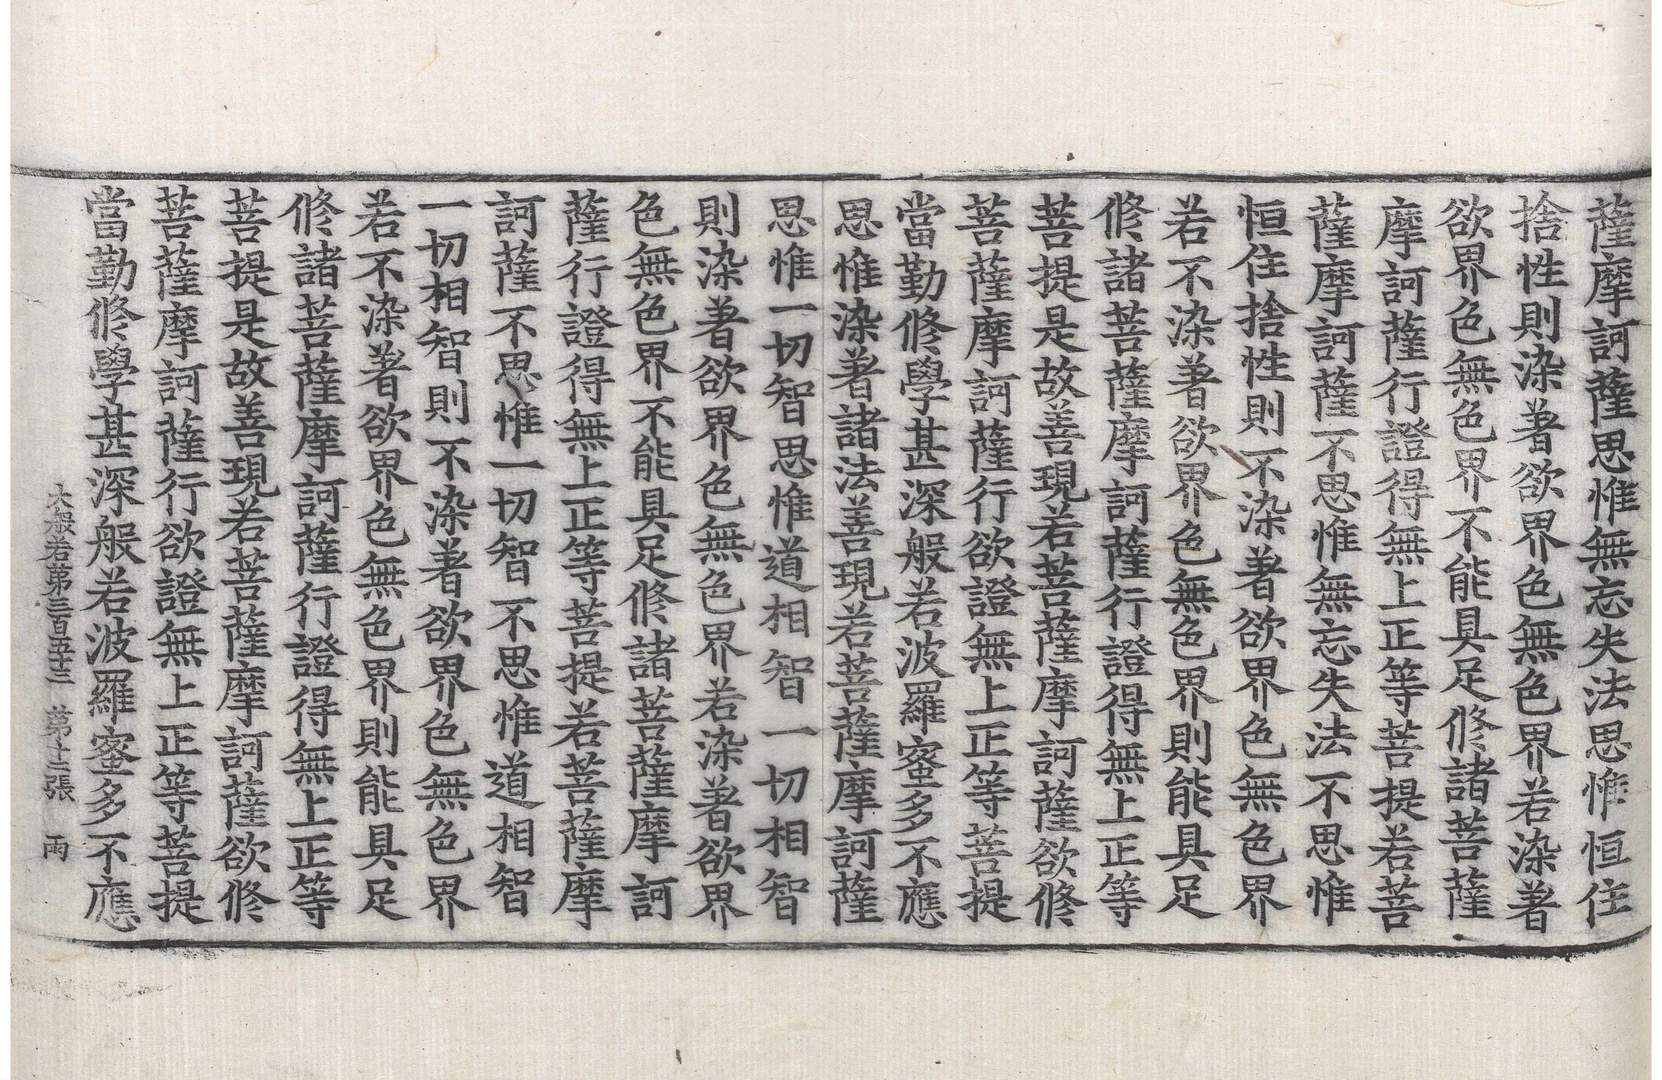 薩摩訶薩思惟無忘失法思惟恒住
捨性則染著欲界色無色界若染著
欲界色無色界不能具足修諸菩薩
摩訶薩行證得無上正等菩提若菩
薩摩訶薩不思惟無忘失法不思惟
恒住捨性則不染著欲界色無色界
若不染著欲界色無色界則能具足
修諸菩薩摩訶薩行證得無上正等
菩提是故善現若菩薩摩訶薩欲修
菩薩摩訶薩行欲證無上正等菩提
當勤修學甚深般若波羅蜜多不應
思惟染著諸法善現若菩薩摩訶薩
思惟一切智思惟道相智一切相智
則染著欲界色無色界若染著欲界
色無色界不能具足修諸菩薩摩訶
薩行證得無上正等菩提若菩薩摩
訶薩不思惟一切智不思惟道相智
一切相智則不染著欲界色無色界
若不染著欲界色無色界則能具足
修諸菩薩摩訶薩行證得無上正等
菩提是故善現若菩薩摩訶薩欲修
菩薩摩訶薩行欲證無上正等菩提
當勤修學甚深般若波羅蜜多不應
大般若第三百五十三 第十二張 雨